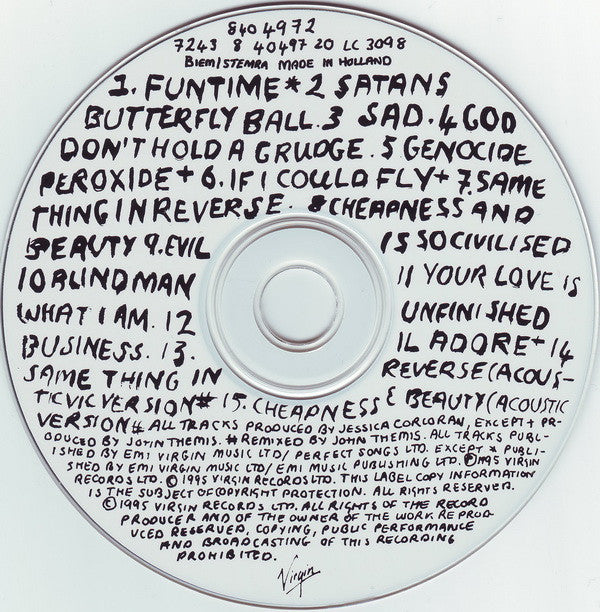 840 4972
7243 8 40497 20 LC 3098
BIEM/STEMRA MADE IN HOLLAND
1. FUNTIME* 2 SATANS
BUTTERFLY BALL. 3 SAD. 4 GOD
DON'T HOLD A GRUDGE. 5 GENOCIDE
PEROXIDE+ 6. IF I COULD FLY+ 7. SAME
THING IN REVERSE. 8 CHEAPNESS AND
BEAUTY 9. EVIL IS SO CIVILISED
10 BLINDMAN 11 YOUR LOVE IS
WHAT I AM. 12 UNFINISHED
BUSINESS. 13. IL ADORE+ 14
SAME THING IN REVERSE (ACOUS-
TICVIC VERSION# 15. CHEAPNESS & BEAUTY (ACOUSTIC
VERSION# ALL TRACKS PRODUCED BY JESSICA CORCORAN, EXCEPT + PR-
ODUCED BY JOHN THEMIS. # REMIXED BY JOHN THEMIS. ALL TRACKS PUBL-
ISHED BY EMI VIRGIN MUSIC LTD/ PERFECT SONGS LTD. EXCEPT * PUBLI-
SHED BY EMI VIRGIN MUSIC LTD/ EMI MUSIC PUBLISHING LTD. ℗1995 VIRGIN
RECORDS LTD. ©1995 VIRGIN RECORDS LTD. THIS LABEL COPY INFORMATION
IS THE SUBJECT OF COPYRIGHT PROTECTION. ALL RIGHTS RESERVED.
©1995 VIRGIN RECORDS LTD. ALL RIGHTS OF THE RECORD
PRODUCER AND OF THE OWNER OF THE WORK REPROD-
UCED RESERVED, COPYING, PUBLIC PERFORMANCE
AND BROADCASTING OF THIS RECORDING
PROHIBITED.
Virgin